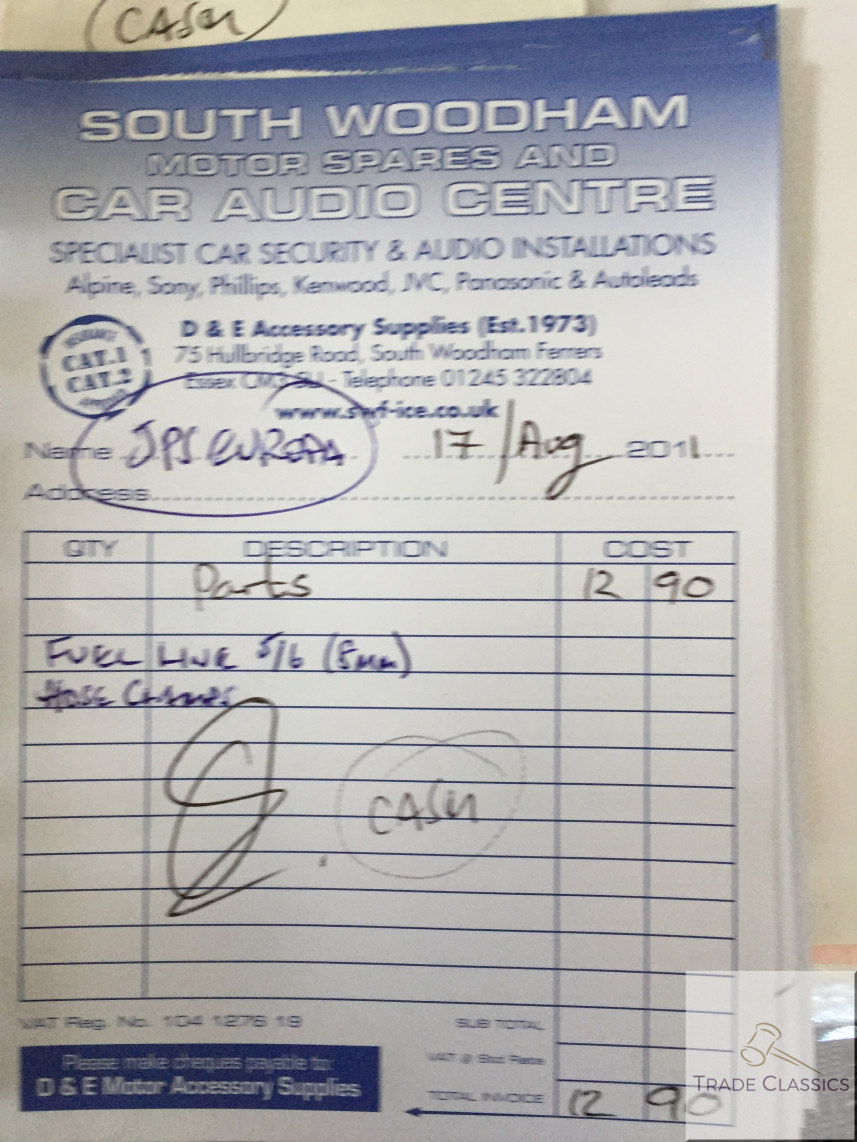 CASH
SOUTH WOODHAM
MOTOR SPARES AND
CAR AUDIO CENTRE
SPECIALIST CAR SECURITY & AUDIO INSTALLATIONS
Alpine, Sony, Phillips, Kenwood, JVC, Panasonic & Autoleads
CAT.1
CAT.2
D & E Accessory Supplies (Est.1973)
75 Hullbridge Road, South Woodham Ferrers
Essex CM3 - Telephone 01245 322804
www.swf-ice.co.uk
Name JPS EUROPA 17/Aug 2011
Address
QTY DESCRIPTION COST
Parts 12 90
FUEL LINE 5/16 (8mm)
HOSE CLAMPS
CASH
VAT Reg. No. 104 1276 19 SUB TOTAL
Please make cheques payable to: VAT @ Std Rate
D & E Motor Accessory Supplies TOTAL INVOICE 12 90
TRADE CLASSICS